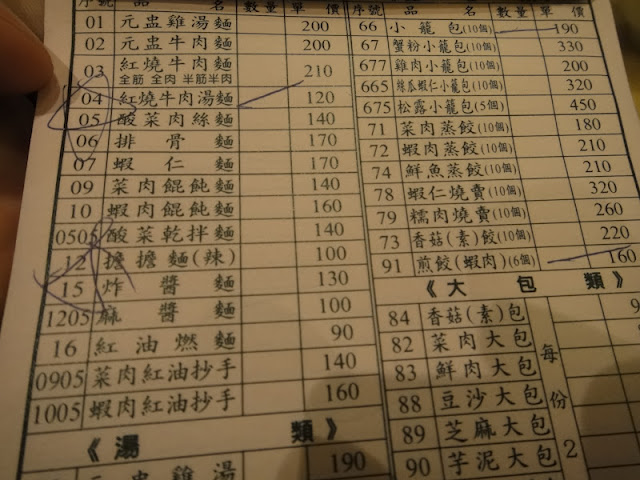 序號 品 名 數量 單 價
01 元盅雞湯麵 200
02 元盅牛肉麵 200
03 紅燒牛肉麵 210
全筋 全肉 半筋半肉
04 紅燒牛肉湯麵 120
05 酸菜肉絲麵 140
06 排骨麵 170
07 蝦仁麵 170
09 菜肉餛飩麵 140
10 蝦肉餛飩麵 160
0505 酸菜乾拌麵 140
12 擔擔麵(辣) 100
15 炸醬麵 130
1205 麻醬麵 100
16 紅油燃麵 90
0905 菜肉紅油抄手 140
1005 蝦肉紅油抄手 160
《湯 類》
元盅雞湯 190
序號 品 名 數量 單 價
66 小籠包(10個) 190
67 蟹粉小籠包(10個) 330
677 雞肉小籠包(10個) 200
665 絲瓜蝦仁小籠包(10個) 320
675 松露小籠包(5個) 450
71 菜肉蒸餃(10個) 180
72 蝦肉蒸餃(10個) 210
74 鮮魚蒸餃(10個) 210
78 蝦仁燒賣(10個) 320
79 糯肉燒賣(10個) 260
73 香菇(素)餃(10個) 220
91 煎餃(蝦肉)(6個) 160
《大 包 類》
84 香菇(素)包
82 菜肉大包
83 鮮肉大包
88 豆沙大包
89 芝麻大包
90 芋泥大包
每份2